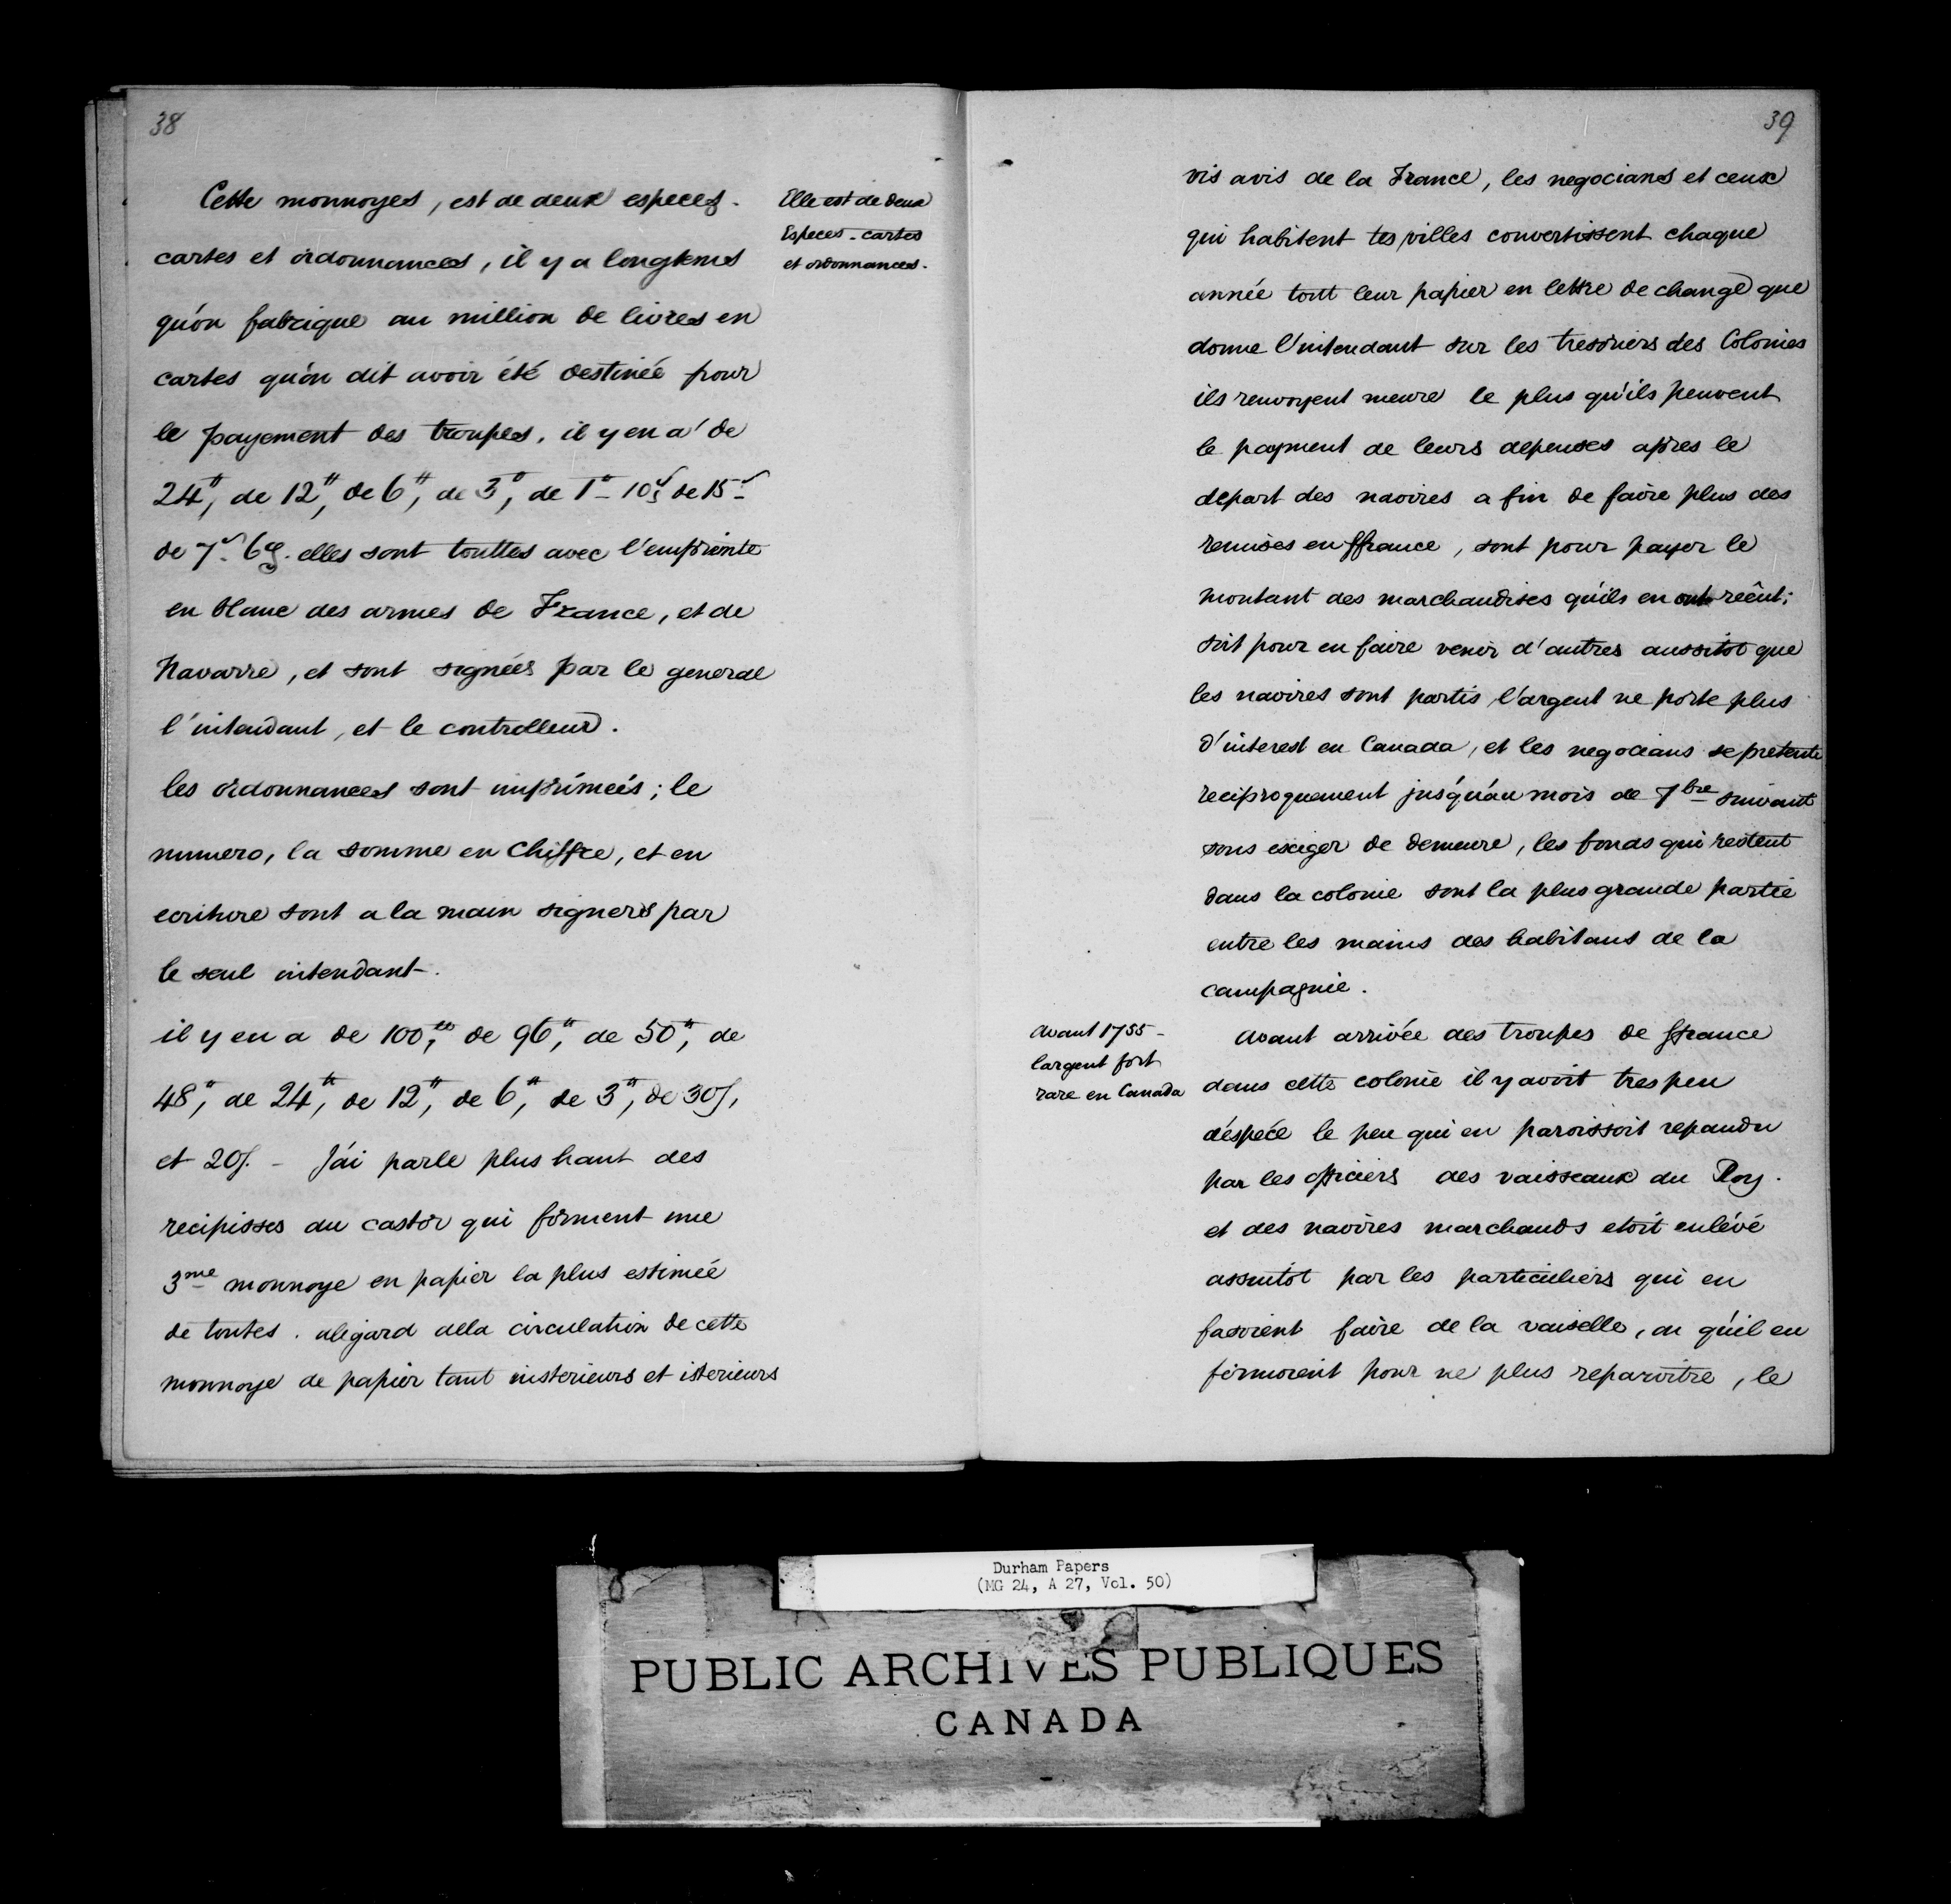 38
Cette monnoyes, est de deux especes.
cartes et ordonnances, il y a longtems
qu'on fabrique au million de livres en
cartes qu'on dit avoir été destinée pour
le payement des troupes, il y en a de
24#, de 12#, de 6#, de 3#, de 1# 10s de 15s
de 7s 6d. elles sont touttes avec l'empriente
en blanc des armes de France, et de
Navarre, et sont signées par le general
l'intendant, et le controlleur.
les ordonnances sont imprimées; le
numero, la somme en Chiffre, et en
ecriture sont a la main signers par
le seul intendant.
il y en a de 100#, de 96#, de 50#, de
48#, de 24#, de 12#, de 6#, de 3#, de 30s,
et 20s. - J'ai parle plus haut des
recipisses du castor qui forment une
3me monnoye en papier la plus estimée
de toutes. alegard alla circulation de cette
monnoye de papier tant insterieurs et isterieurs
Elle est de deux
Especes - cartes
et ordonnances.
39
vis avis de la France, les negocians et ceux
qui habitent les villes convertissent chaque
année tout leur papier en lettre de change que
donne l'intendant sur les tresoriers des Colonies
ils renvoyent meure le plus qu'ils peuvent
le payment de leurs depenses apres le
depart des navires a fin de faire plus des
remises en ffrance, sont pour payer le
montant des marchandises qu'ils en ont reçut;
soit pour en faire venir d'autres aussitot que
les navires sont partis l'argent ne porte plus
d'interest en Canada, et les negocians se pretente
reciproquement jusqu'au mois de 7bre suivant
sous exiger de demeure, les fonds qui restent
dans la colonie sont la plus grande partie
entre les mains des habitans de la
campagnie.
Avant 1755 -
largent fort
rare en Canada
Avant arrivée des troupes de ffrance
dans cette colonie il y avoit tres peu
d'espece le peu qui en paroissoit repandu
par les officiers des vaisseaux du Roy.
et des navires marchands etoit enlévé
assuitot par les particuliers qui en
fasoient faire de la vaiselle, ou qu'il en
fermoient pour ne plus reparoitre, le
Durham Papers
(MG 24, A 27, Vol. 50)
PUBLIC ARCHIVES PUBLIQUES
CANADA